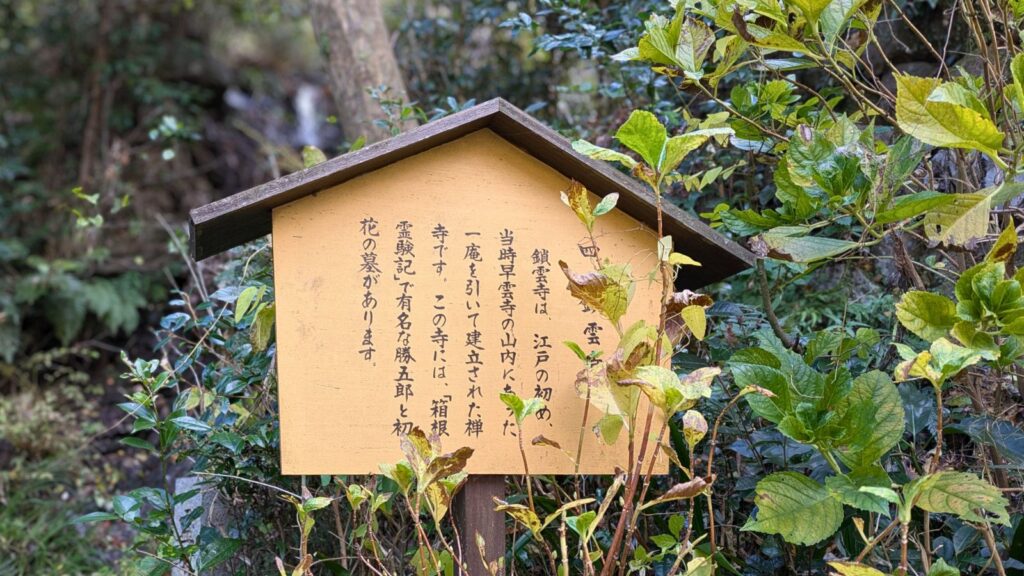 雲
鎖雲寺は、江戸の初め、
当時早雲寺の山内にあった
一庵を引いて建立された禅
寺です。この寺には、「箱根
霊験記で有名な勝五郎と初
花の墓があります。